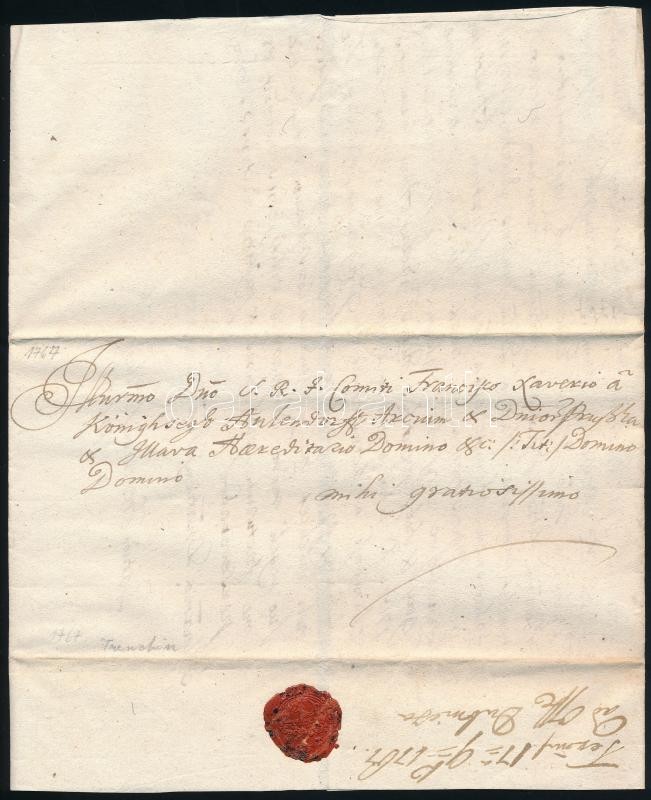 1767
Illurmo Dno S. R. I. Comiti Francisco Xaverio à
Königsegg Aulendorff Arcium & Dnior
& Illava Haereditario Domino &c: /: Tit: / Domino
Domino
mihi gratiosissimo
1767 Trenchin
Dubnicza
1767